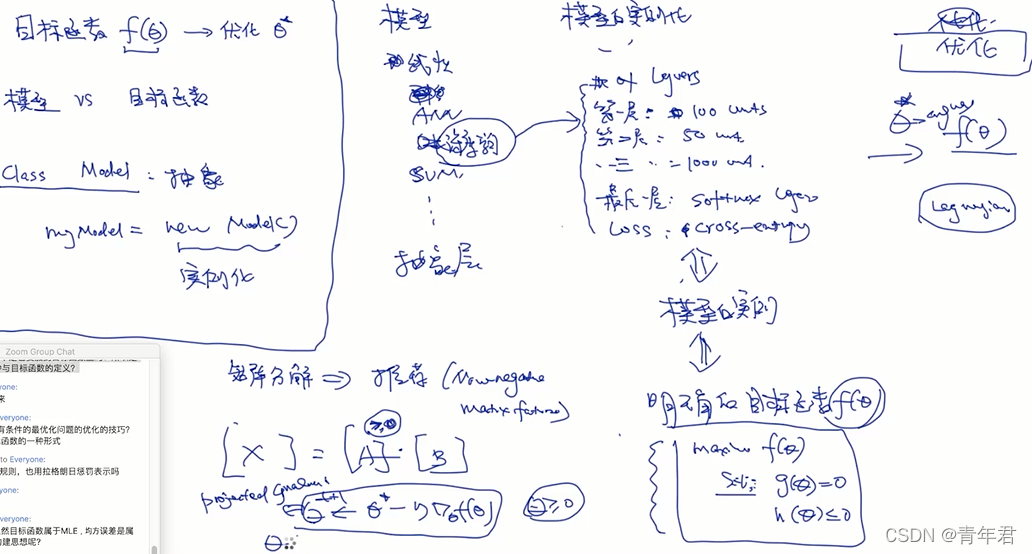 目标函数 f(θ) → 优化 θ*
模型 vs 目标函数
Class Model: 抽象
myModel = new Model()
实例化
模型
线性
ANN
深度学习
SVM
抽象层
模型的实例化
# of layers
第一层: 100 units
第二层: 50 unit
三 = 1000 unit.
最后一层: softmax layer
Loss: cross-entropy
模型的实例
明确的目标函数 f(θ)
f(θ)
s.t.: g(θ)=0
h(θ)≤0
优化
θ* = argmax f(θ)
矩阵分解 ⇒ 推荐 (Non-negative
matrix factorization)
≥0
[X] = [A]·[B]
projected gradient
θ^{t+1} ← θ^t − η∇_θ f(θ)
θ≥0
θ
Zoom Group Chat
与目标函数的定义?
one:
来
veryone:
有条件的最优化问题的优化的技巧?
函数的一种形式
to Everyone:
规则，也用拉格朗日惩罚表示吗
yone:
veryone:
然目标函数属于MLE , 均方误差是属
建思想呢?
CSDN @青年君